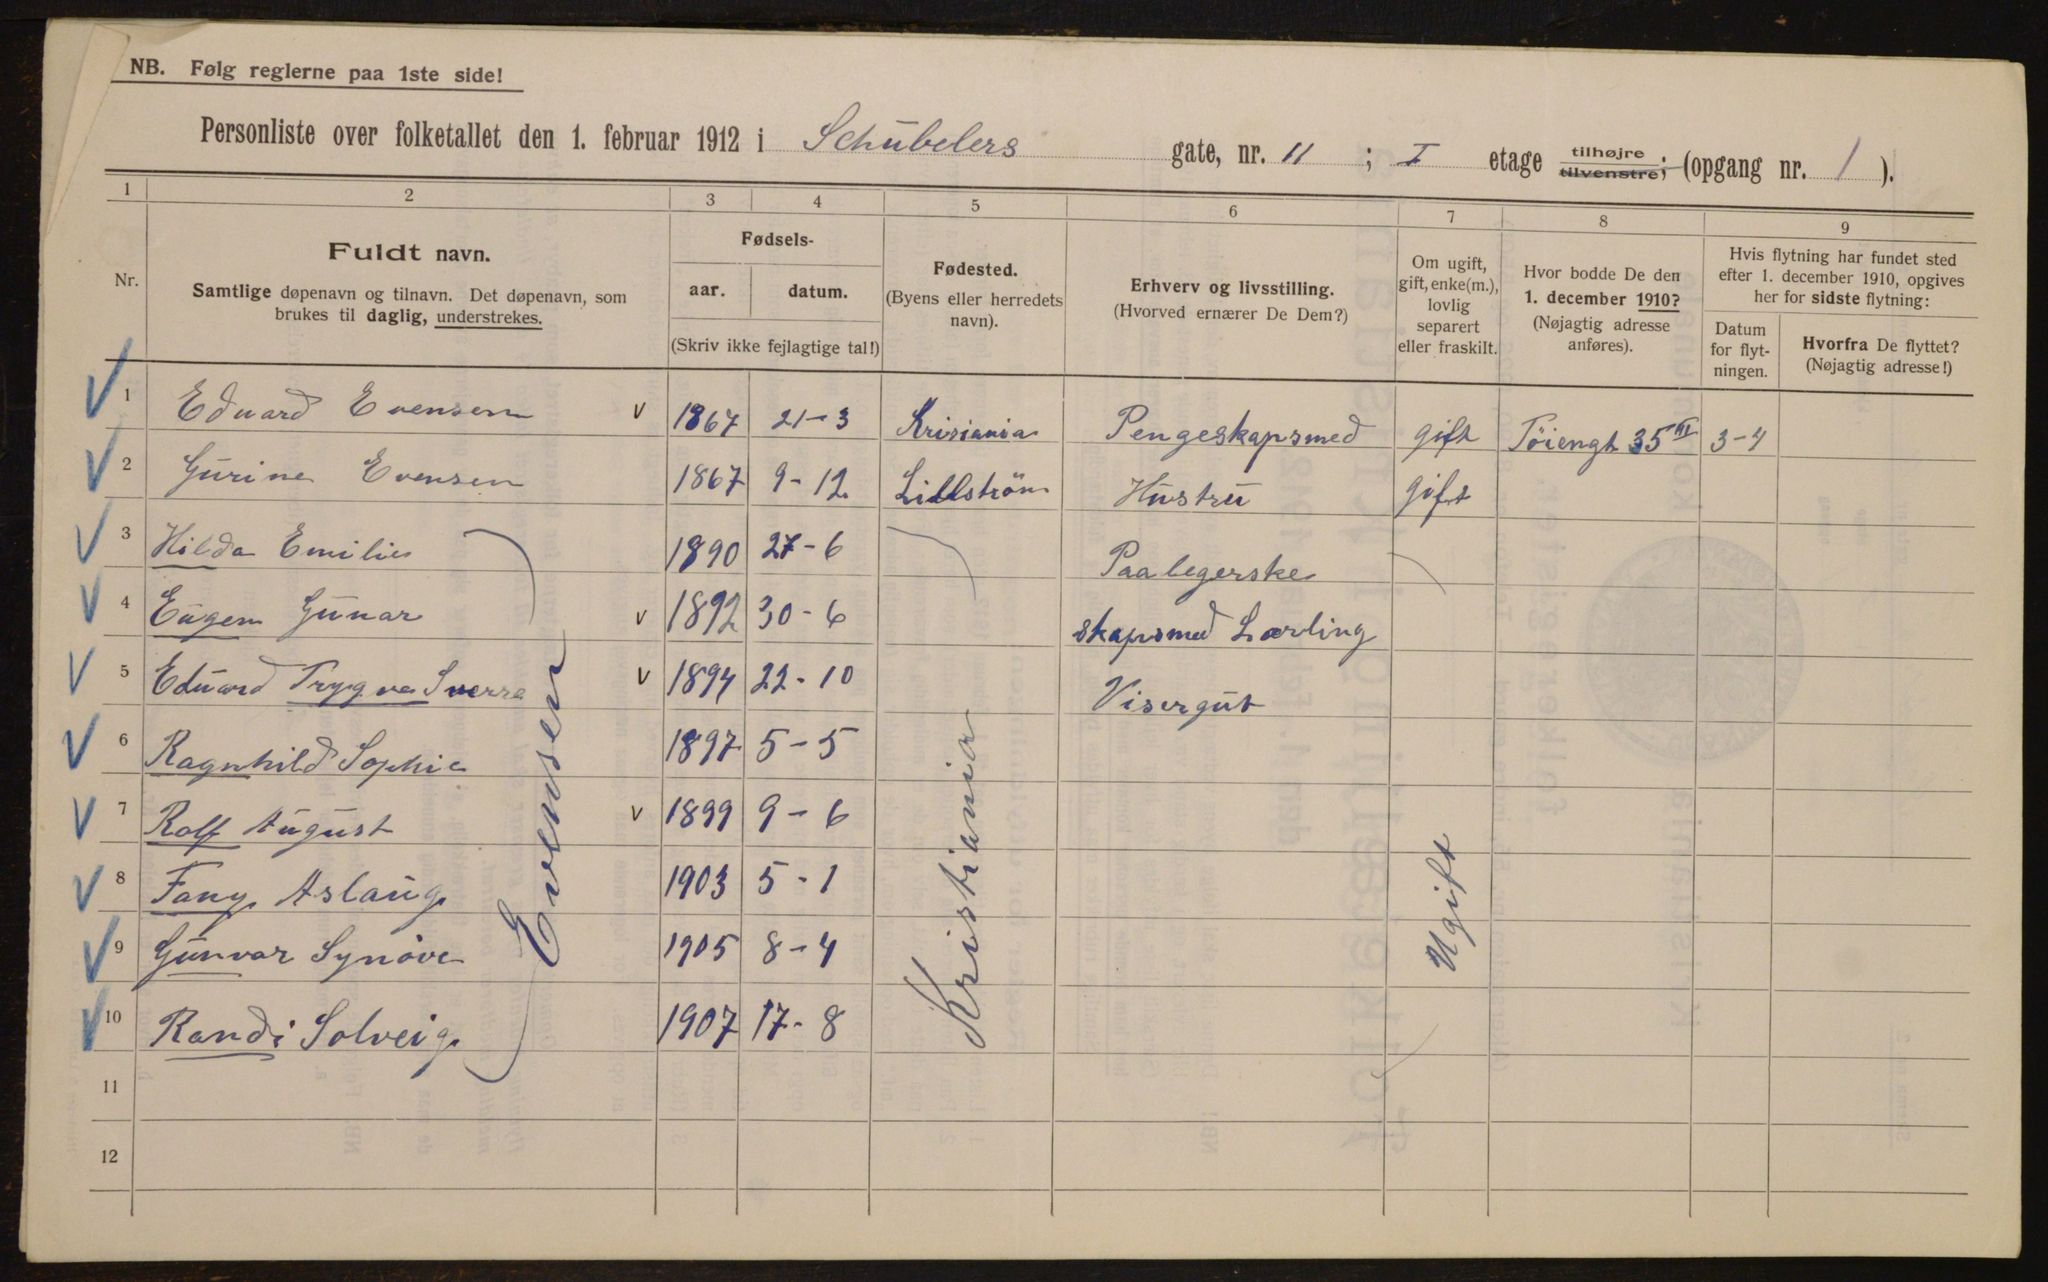 NB. Følg reglerne paa 1ste side!
Personliste over folketallet den 1. februar 1912 i Schübelers gate, nr. 11 ; I etage tilhøjre tilvenstre; (opgang nr. 1 ).
1 2 3 4 5 6 7 8 9
Nr.
Fuldt navn.
Samtlige døpenavn og tilnavn. Det døpenavn, som
brukes til daglig, understrekes.
Fødsels-
aar. datum.
(Skriv ikke fejlagtige tal!)
Fødested.
(Byens eller herredets
navn).
Erhverv og livsstilling.
(Hvorved ernærer De Dem?)
Om ugift,
gift, enke(m.),
lovlig
separert
eller fraskilt.
Hvor bodde De den
1. december 1910?
(Nøjagtig adresse
anføres).
Hvis flytning har fundet sted
efter 1. december 1910, opgives
her for sidste flytning:
Datum
for flyt-
ningen.
Hvorfra De flyttet?
(Nøjagtig adresse!)
1 Eduard Evensen v 1867 21-3 Krisiania Pengeskapsmed gift Tøiengt 35 III 3-4
2 Gurine Evensen 1867 9-12 Lillstrøm Hustru gift
3 Hilda Emilie 1890 27-6 Paalegerske
4 Eugen Gunar v 1892 30-6 skapsmed Lærling
5 Eduard Trygve Sverre v 1894 22-10 Visergut
6 Ragnhild Sophie 1897 5-5
7 Rolf August v 1899 9-6
8 Fany Aslaug 1903 5-1
9 Gunvor Synøve 1905 8-4
10 Randi Solveig 1907 17-8
Evensen
Kristiania
Ugift
11
12